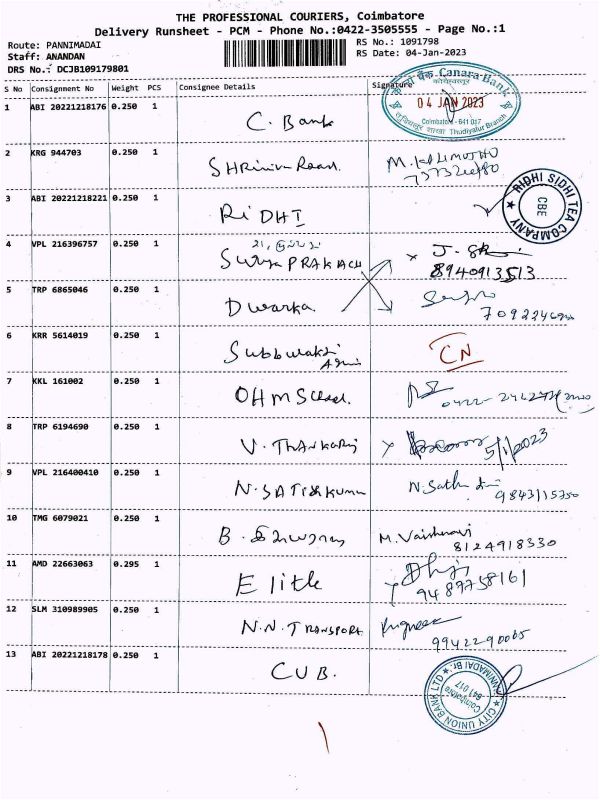 THE PROFESSIONAL COURIERS, Coimbatore
Delivery Runsheet - PCM - Phone No.:0422-3505555 - Page No.:1
Route: PANNIMADAI
RS No.: 1091798
Staff: ANANDAN
RS Date: 04-Jan-2023
DRS No.: DCJB109179801
S No Consignment No Weight PCS Consignee Details Signature
केनरा बैंक Canara Bank
04 JAN 2023
Coimbatore - 641 017
Thudiyalur Branch
1 ABI 20221218176 0.250 1 C. Bank
2 KRG 944703 0.250 1
3 ABI 20221218221 0.250 1 RiDHI
RIDHI SIDHI TEA COMPANY
CBE
4 VPL 216396757 0.250 1 Surya PRAKACH
8940913513
5 TRP 6865046 0.250 1 Dwarka.
6 KRR 5614019 0.250 1 CN
7 KKL 161002 0.250 1 OHM
8 TRP 6194690 0.250 1 V. THANKARAJ 5/1/2023
9 VPL 216400410 0.250 1 N. SATISHKUMAR 9843115750
10 TMG 6079021 0.250 1 B. M. Vaishnavi
8124918330
11 AMD 22663063 0.295 1 Elite
9489758161
12 SLM 310989905 0.250 1 N.N. TRANSPORT
9942290065
13 ABI 20221218178 0.250 1 CUB.
CITY UNION BANK LTD
PANNIMADAI Br.
Coimbatore
641 017